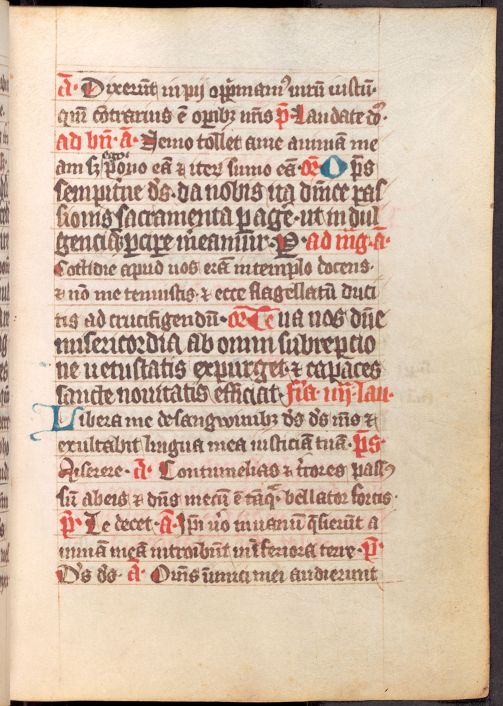 a. Dixerūt inpij opp̄mamꝰ virū iustū.
qm̄ cōtrarius ē opibꝫ nr̄is p̄. Laudate d.
ad bn̄. a. Nemo tollet a me animam me
am sꝫ ego pono eā ⁊ iterū sumo eā. or. O p̄s
sempit̄ne ds. da nobis ita dn̄ice pas
sionis sacramenta pagē. ut indul
genciā ꝑcipe meamur. P. ad mḡ. a.
Cottidie apud uos erā in templo docens.
⁊ nō me tenuistis. ⁊ ecce flagellatū duci
tis ad crucifigendū. or. Tua nos dn̄e
misericordia ab omni subrepcio
ne uetustatis expurget. ⁊ capaces
sancte nouitatis efficiat. fia. iiij. lau.
Libera me de sangwinibꝫ ds ds ms ⁊
exultabit lingua mea iusticiā tuā. ps.
Miserere. a. Contumelias ⁊ t̄rores passꝰ
sū ab eis ⁊ dn̄s mecū ē tāq̄. bellator fortis.
p̄. Te decet. a. Ip̄i v̄o in uanū q̄sierūt a
nimam meā introibūt in īferiora terre. p̄.
Ds ds. a. Om̄s inimici mei audierunt